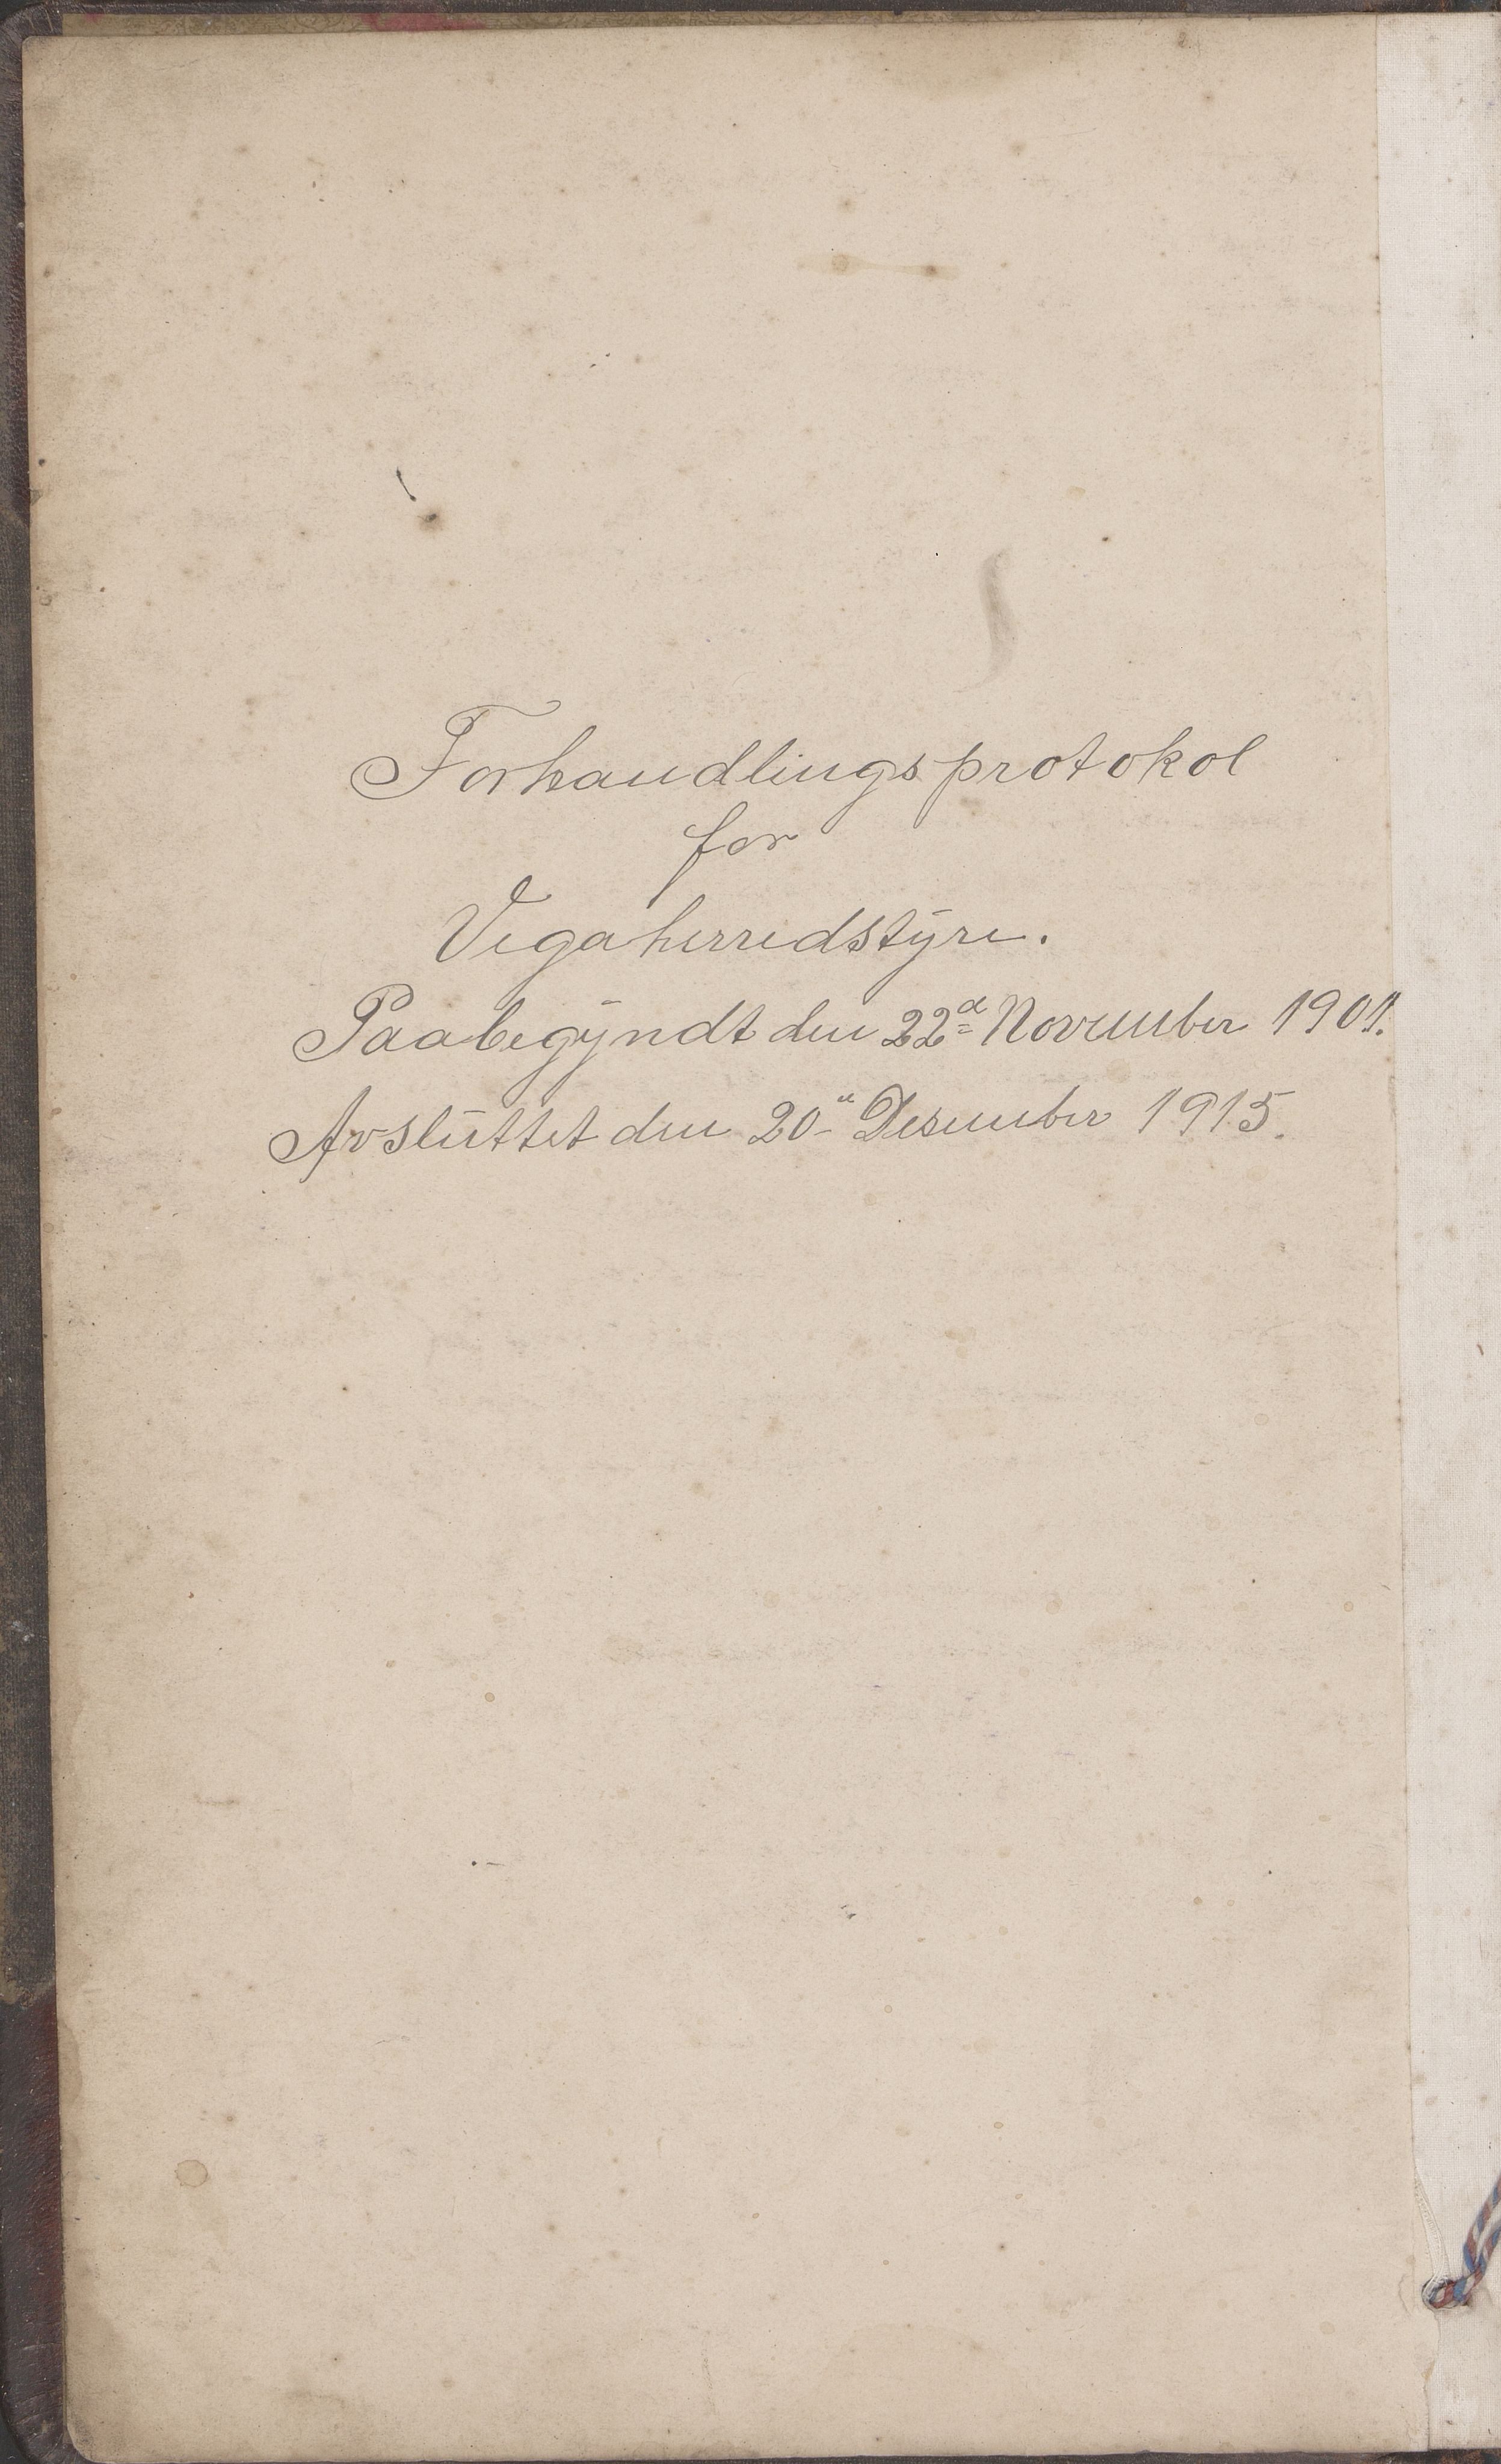 Forhandlingsprotokol
for
Vega herredstyre.
Paabegyndt den 22d November 1901.
Avsluttet den 20de Desember 1915.